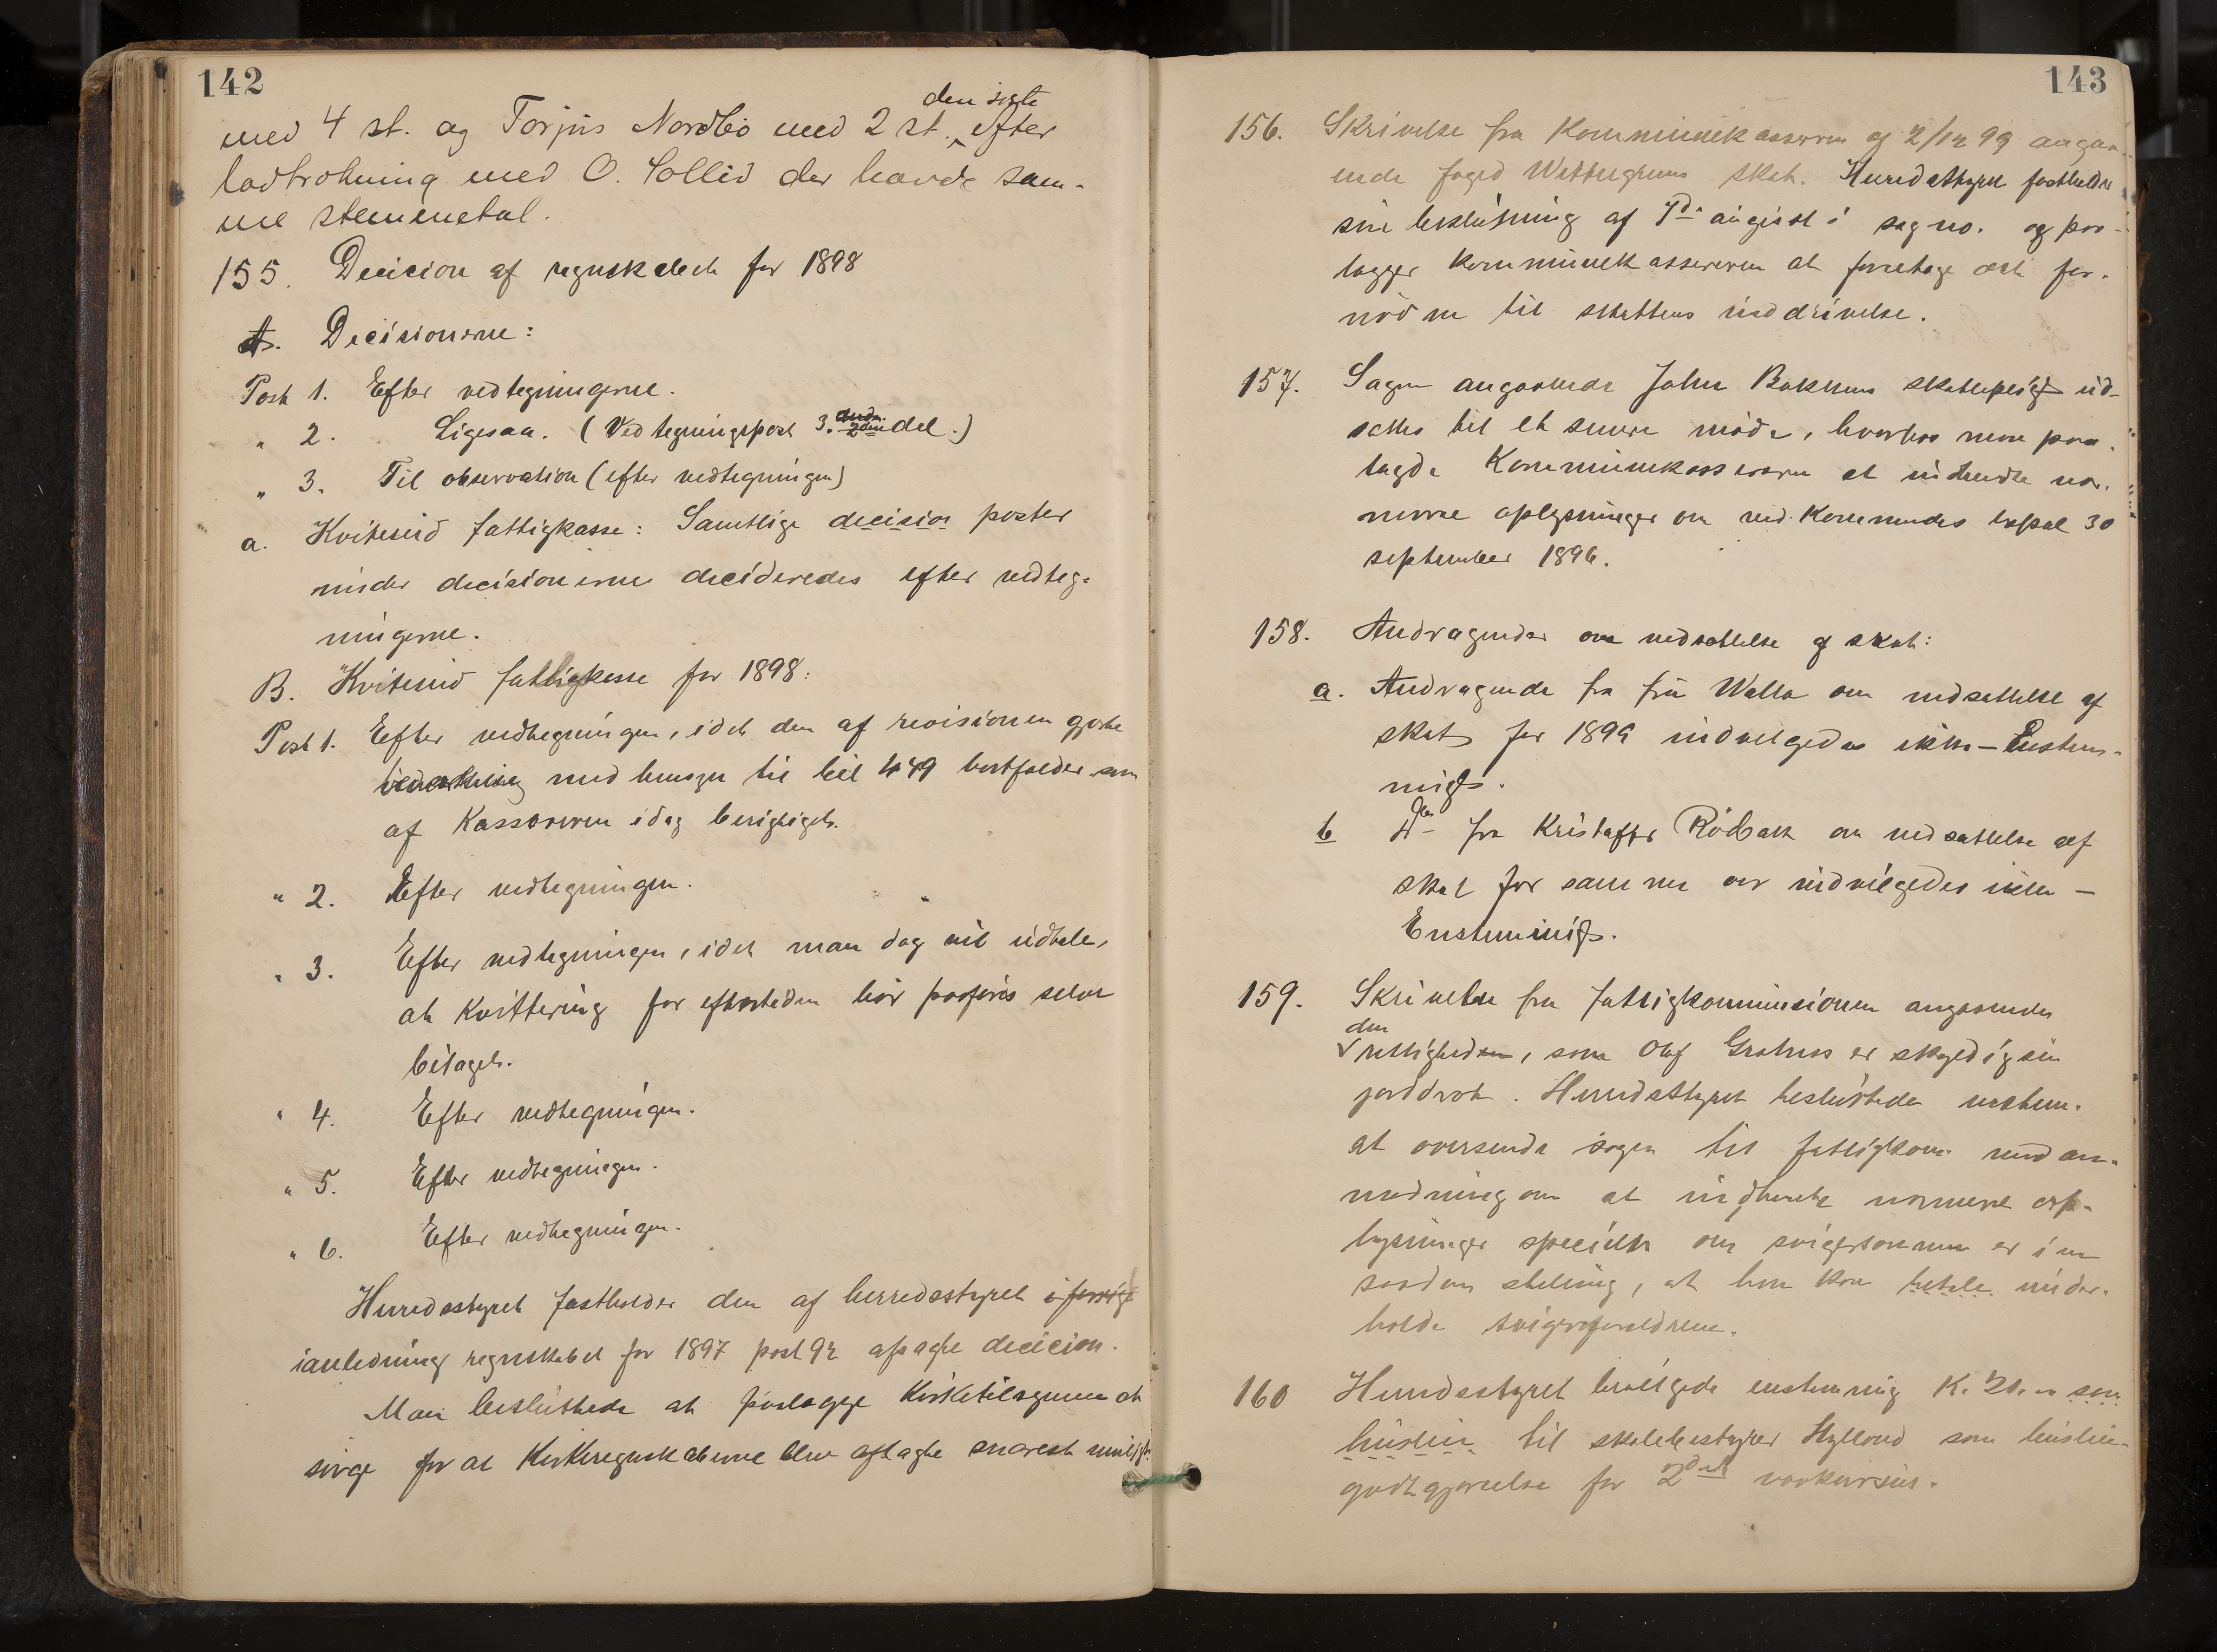 142
med 4 st. og Torjus Nordbö med 2 st. den siste efter
lodtrekning med O. Sollid der havde sam-
me stemmetal.
155. Decision af regnskabet for 1898
A. Decisionerne:
Post 1. Efter vedtegningerne.
" 2. Ligesaa. (Vedtegningspost 3. 2den del.)
" 3. Til observation (efter vedtegningen)
a. Kviteseid fattigkasse: Samtlige decision poster
under decisionerne decideredes efter vedteg-
ningerne.
B. Kviteseid fattigkasse for 1898:
Post 1. Efter vedtegningen, idet den af revisionen gjorte
bemerkning med hensyn til bil 449 bortfalder som
af Kassereren idag berigtiget.
" 2. Efter vedtegningen.
" 3. Efter vedtegningen, idet man dog vil udtale,
at Kvittering for eftertiden bör paaföres selve
bilaget.
" 4. Efter vedtegningen.
" 5. Efter vedtegningen.
" 6. Efter vedtegningen.
Herredsstyret fastholder den af herredsstyret i forrige
ianledning regnskabet for 1897 post 92 afsagte decision.
Man besluttede at paalægge Kirketilsynene at
sörge for at Kirkeregnskaberne blev aflagte snarest muligt.
143
156. Skrivelse fra Kommunekassereren af 2/12 99 angaa-
ende foged Wettergrens skat. Herredsstyret fastholder
sin beslutning af august i sag no. og paa-
lægger kommunekassereren at foretage det for-
nödne til skattens inddrivelse.
157. Sagen angaaende John Bakkens skattepligt ud-
sattes til et senere möde, hvorhos man paa-
lagde Kommunekassereren at indhente nær-
mere oplysninger om ved Kommendes
30
september 1896.
158. Andragender om nedsættelse af skat:
a. Andragende fra fru Walla om nedsættelse af
skat for 1899 indvilgedes ikke – Enstem-
migt.
b fra Kristoffer Rödbæk om nedsættelse af
skat for samme aar indvilgedes ikke –
Enstemmigt.
159. Skrivelse fra fattigkommissionen angaaende
den rettigheden, som Olaf er skyldig sin
jorddrot. Herredsstyret besluttede enstem.
at oversende sagen til fattigkom. med an-
modning om at indhente nærmere op-
lysninger specielt om svigersönnen er i en
saadan stilling, at han kan betale under-
holde svigerforældrene.
160 Herredsstyret bevilgede enstemmig Kr. 20.00 som
husleie til skolebestyrer Hylland som husleie-
godtgjörelse for 2det vaarkursus.